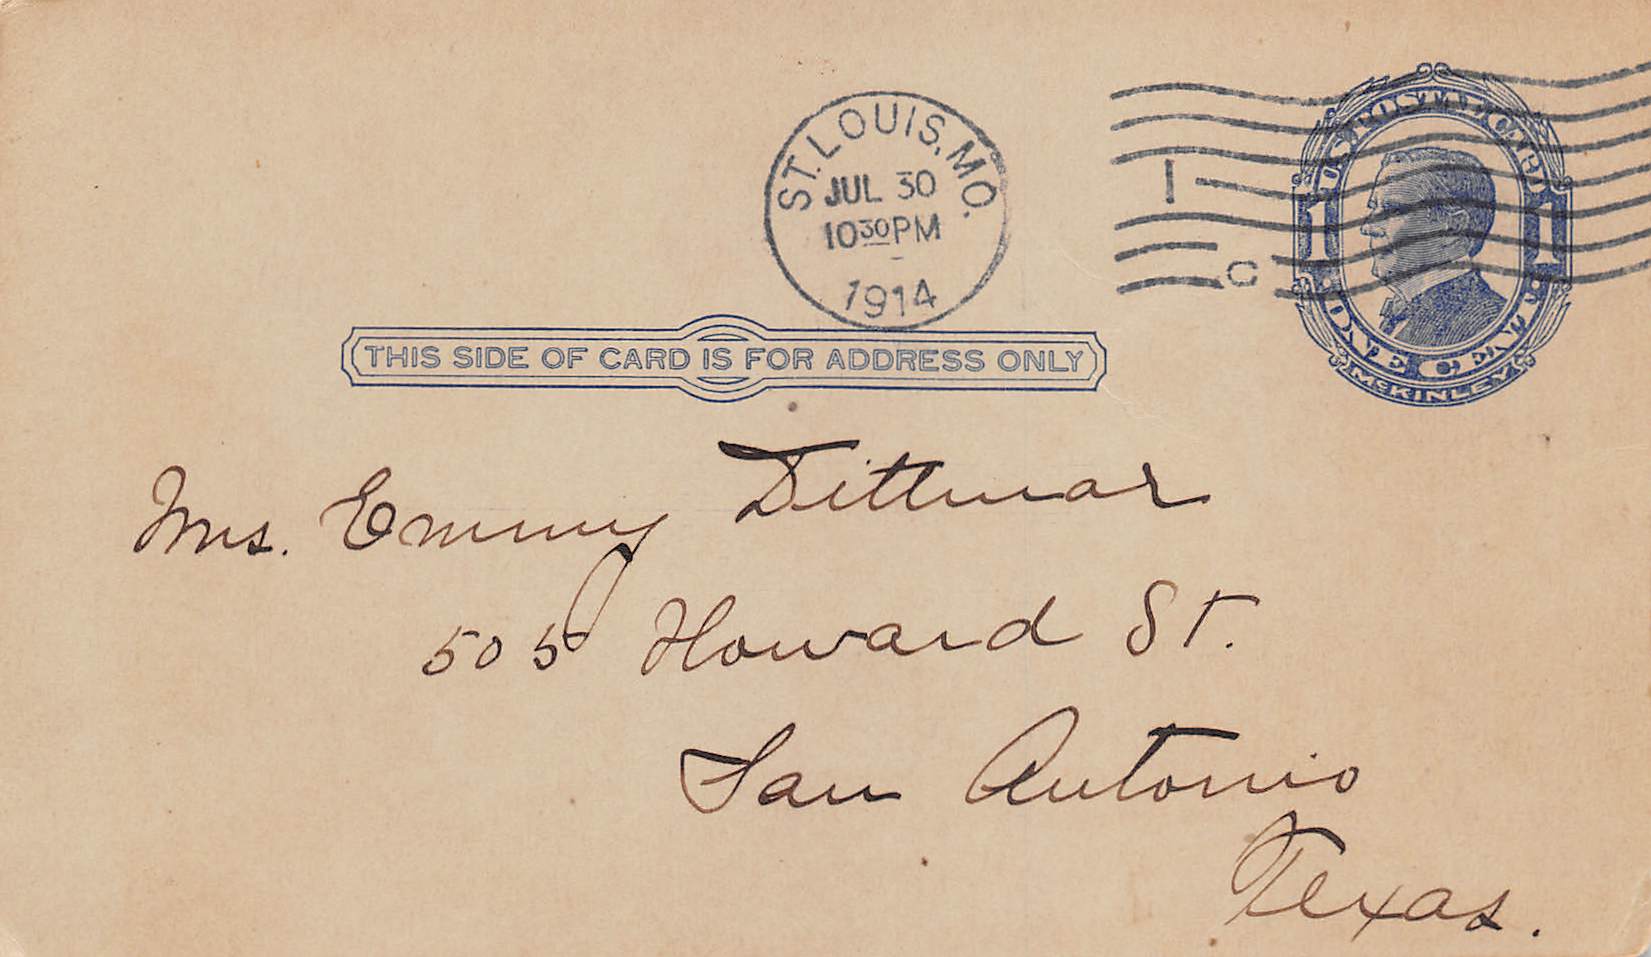 ST. LOUIS, MO.
JUL 30
10 30 PM
1914
1 C
U.S. POSTAL CARD
1 1
ONE CENT
McKINLEY
THIS SIDE OF CARD IS FOR ADDRESS ONLY
Mrs. Emmy Dittmar
505 Howard St.
San Antonio
Texas.